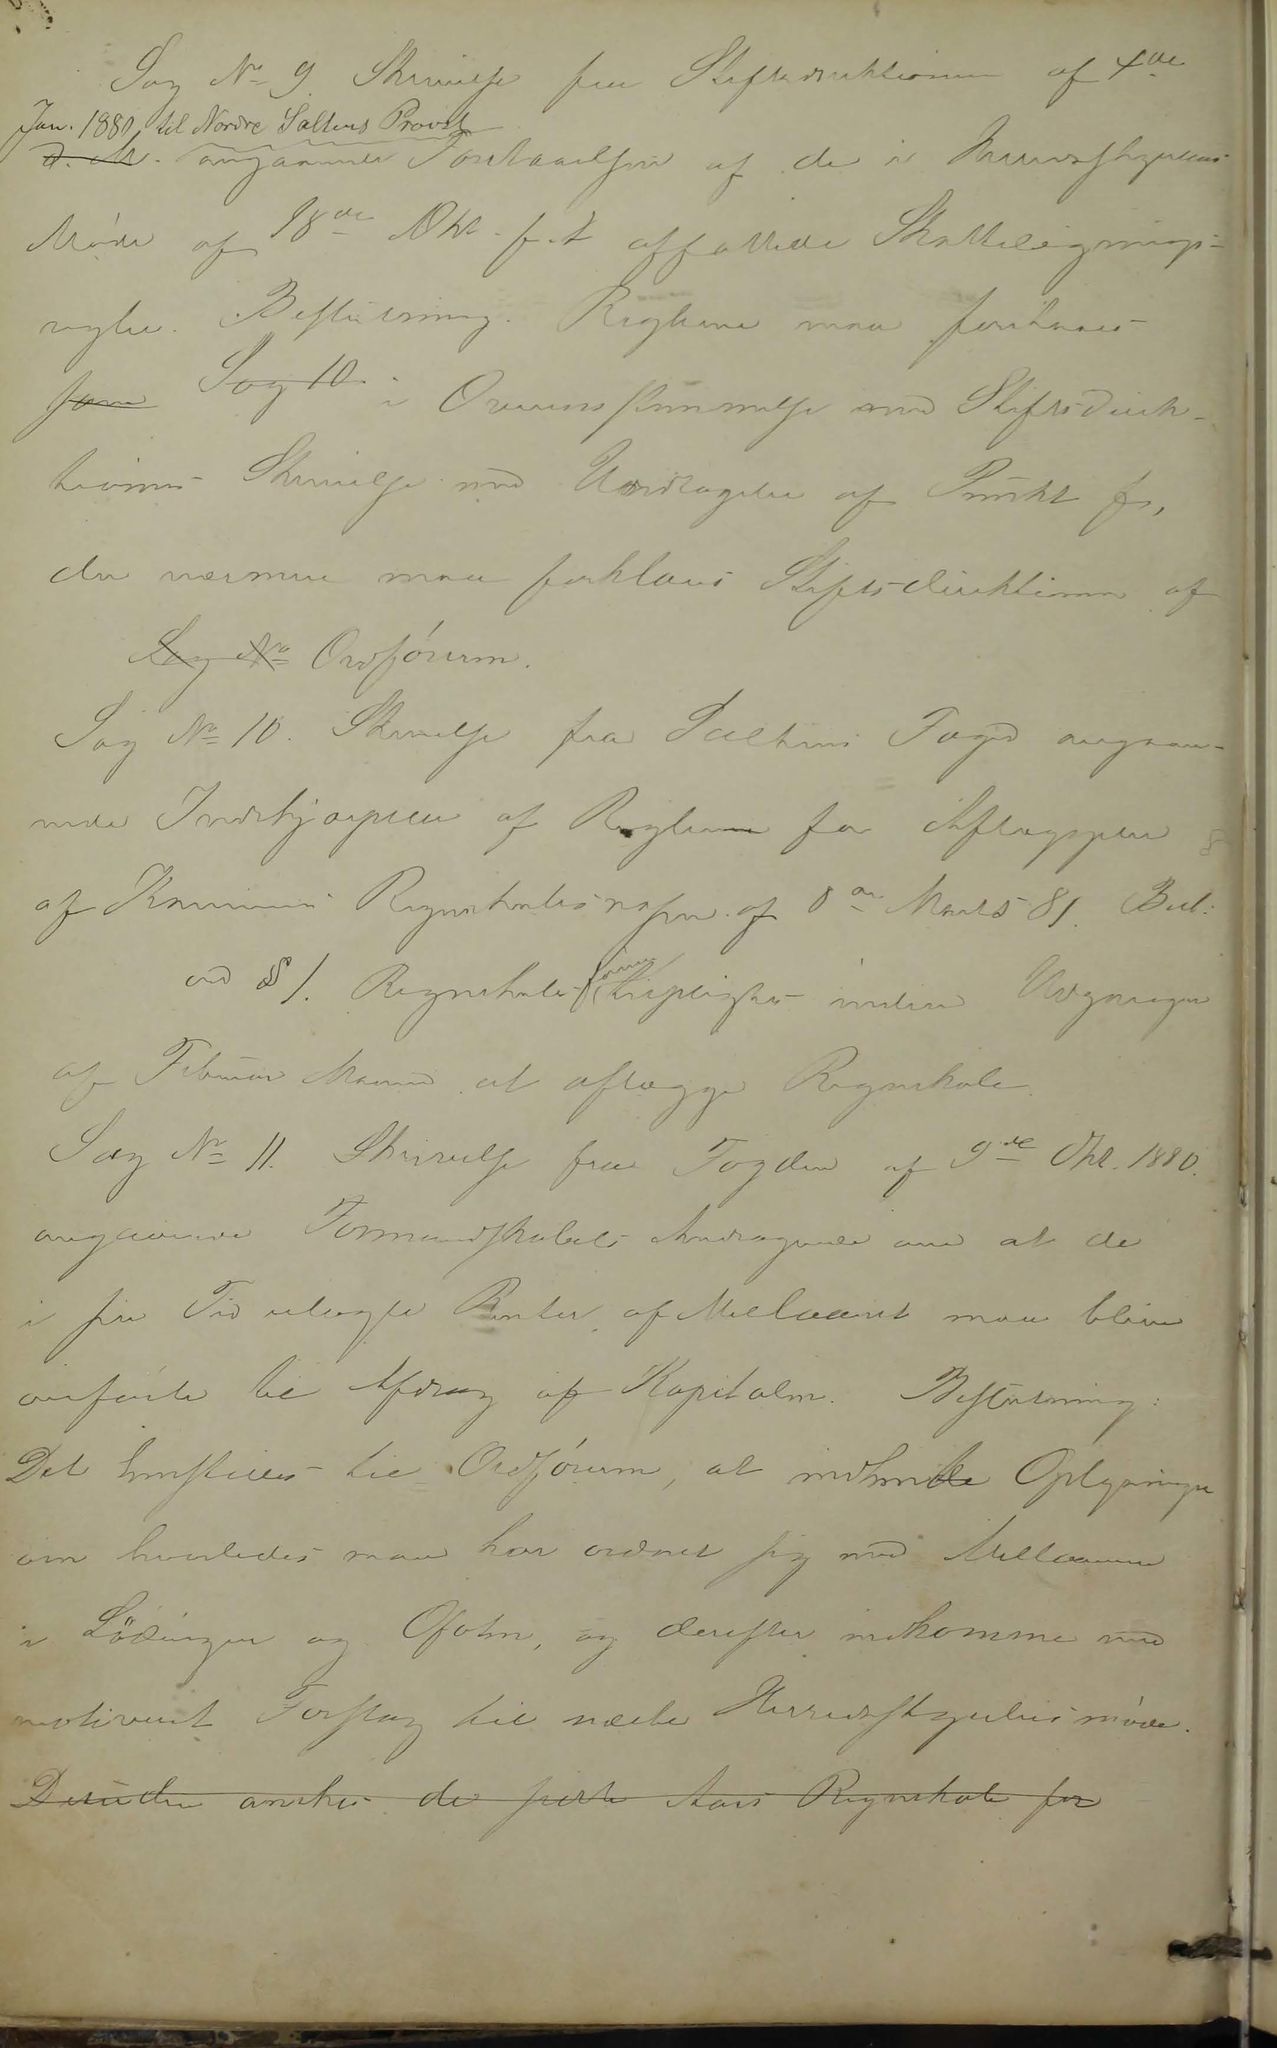 Sag No 9. Skrivelse fra Stiftsdirektionen af 4de
Jan. 1881 til Nordre Saltens Provst
d. M. angaaende Forstaaelsen af de i Herredsstyrelsens
Møde af 18de Okt. f. A. affattede Skatteligningsregler
regler. Beslutning. Reglerne maa forstaaes
som Sag 10. i Overensstemmelse med Stiftsdirek-
tionens Skrivelse med Undtagelse af Punkt
der nærmere maa forklares Stiftsdirektionen af
Sag No Ordføreren.
Sag No 10. Skrivelse fra Saltens Foged angaa-
ende Indskjærpelse af Reglerne for Aflæggelse
af Kommune Regnskabsvæsen af 8de Marts 81. Besl:
ved § 1. Regnskabs inden Udgangen
af Februar Maaned at aflægge Regnskab.
Sag No 11. Skrivelse fra Fogden af 9de Okt. 1880.
angaaende Formandskabets Andragende om at de
i sin Tid ilagte Renter af Mellaanet maa blive
overførte til Afdrag af Kapitalen. Beslutning:
Det henstilles til Ordføreren, at indhente Oplysninger
om hvorledes man har ordnet sig med Mellaanene
i Lödingen og Ofoten, og derefter indkomme med
motiveret Forslag til næste Herredsstyrelsesmøde.
Desuden ønskes de første Aars Regnskab for